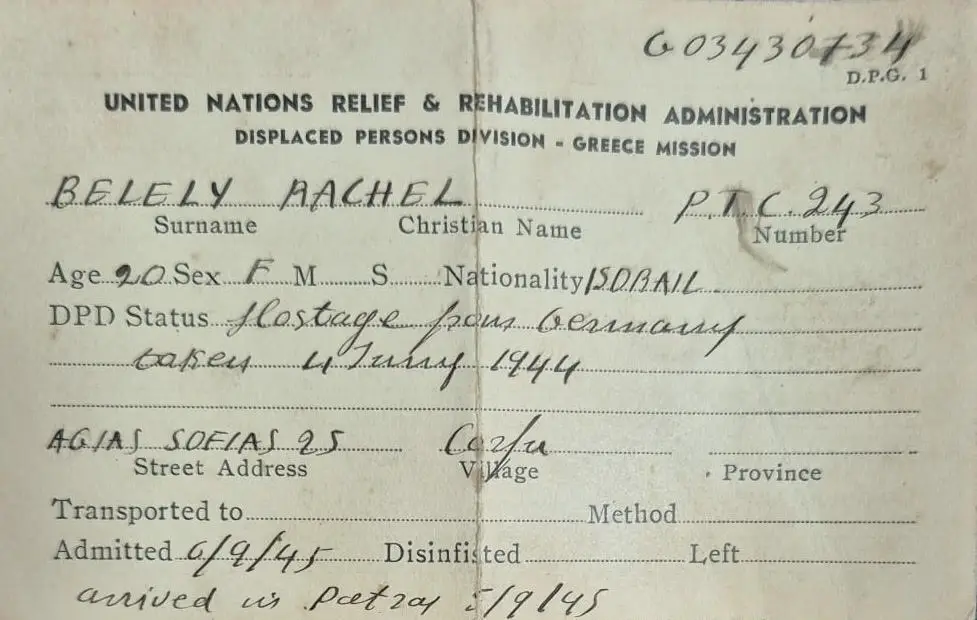 G03430734
D.P.G. 1
UNITED NATIONS RELIEF & REHABILITATION ADMINISTRATION
DISPLACED PERSONS DIVISION - GREECE MISSION
BELELY RACHEL P.T.C. 243
Surname Christian Name Number
Age 20 Sex F M S Nationality ISDRAIL
DPD Status Hostage from Germany
taken 4 Juny 1944
AGIAS SOFIAS 25 Corfu
Street Address Village Province
Transported to Method
Admitted 6/9/45 Disinfisted Left
arrived in Patras 5/9/45